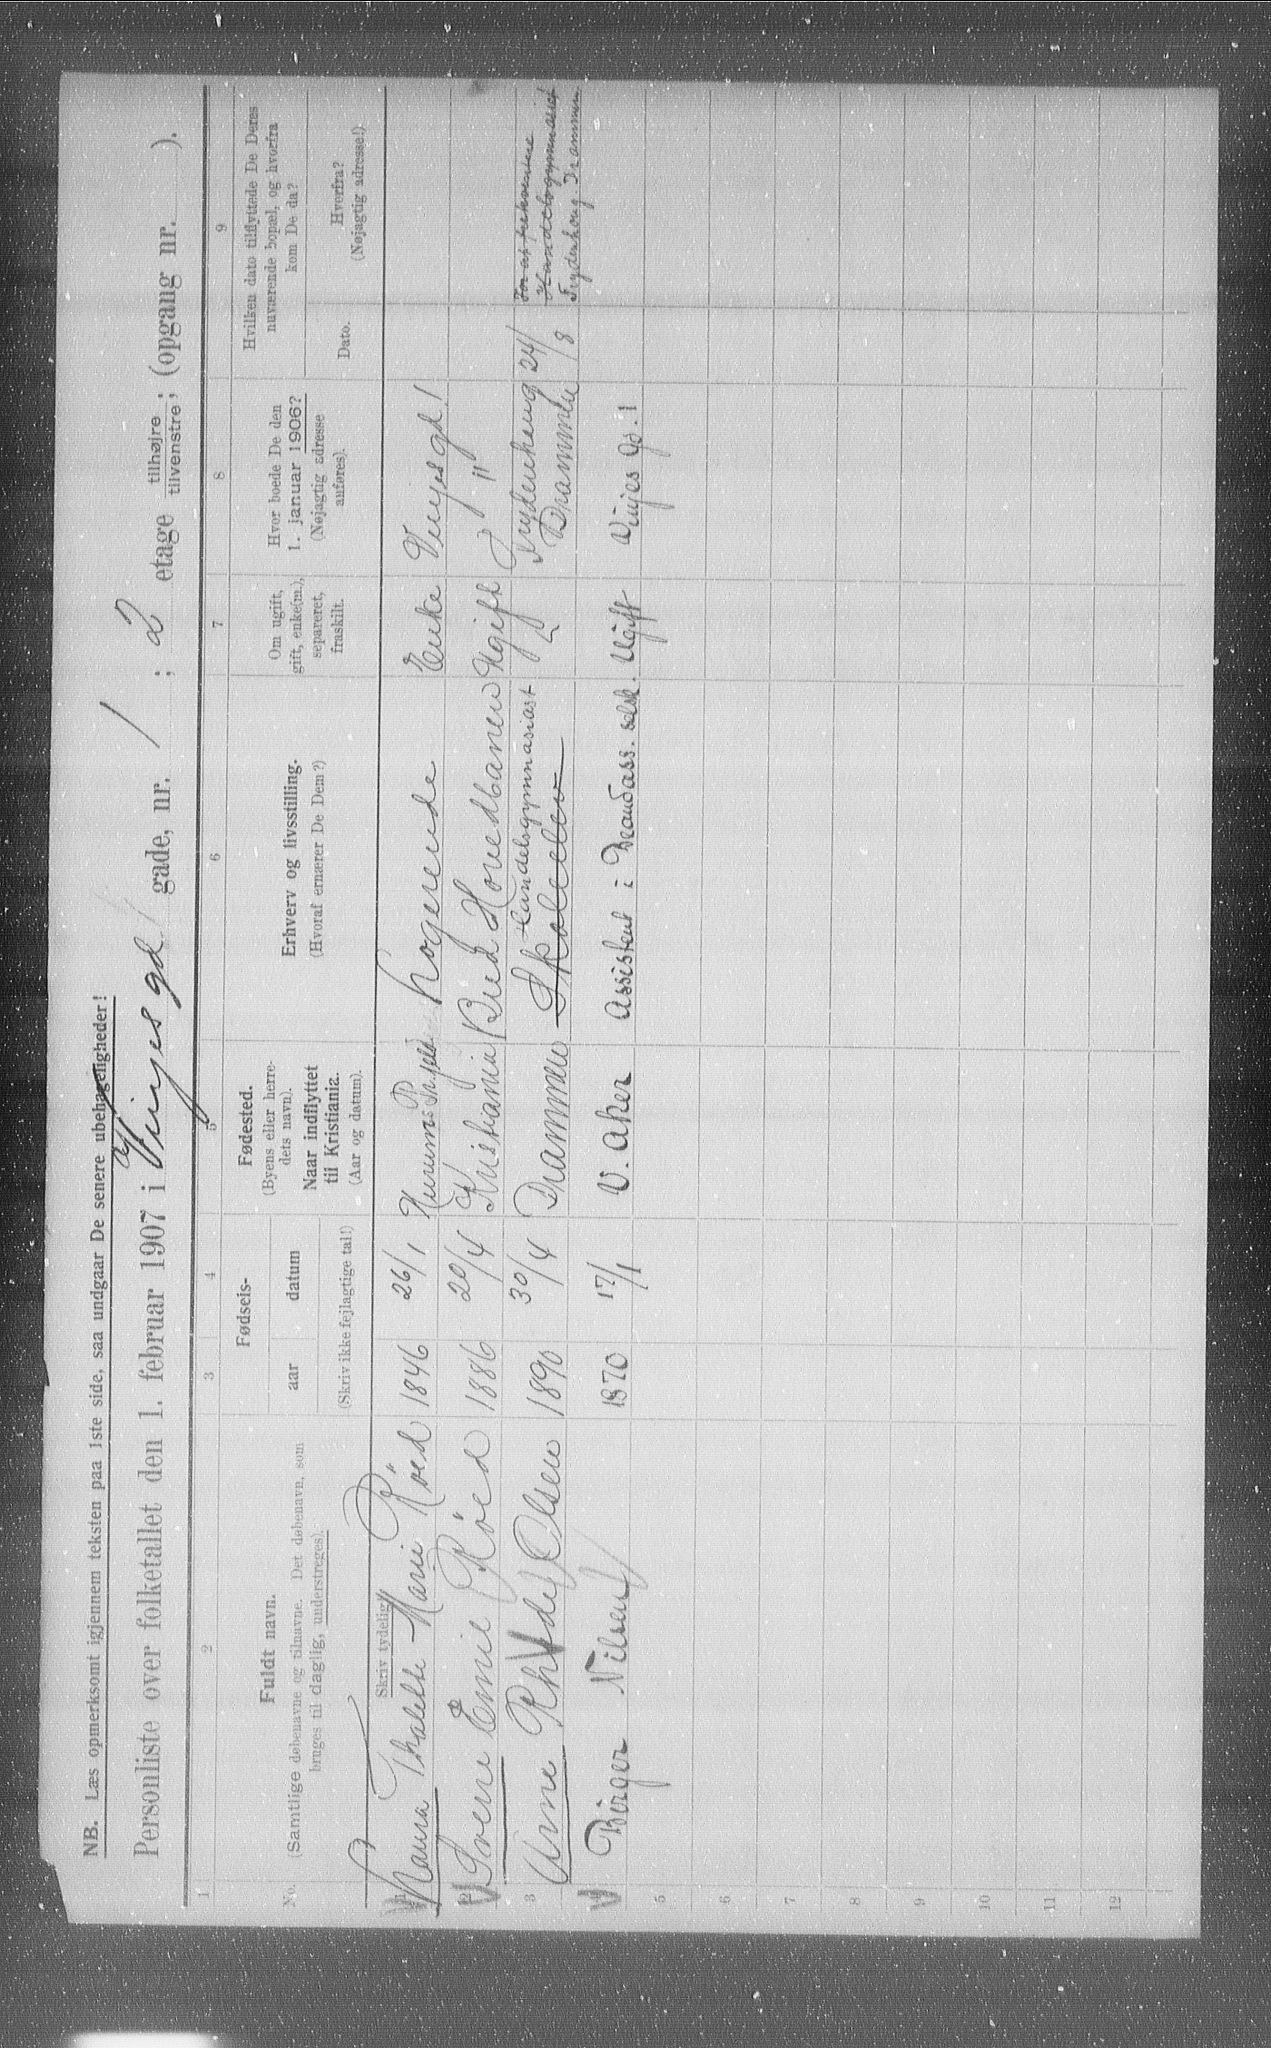 NB. Læs opmerksomt igjennem teksten paa 1ste side, saa undgaar De senere ubehageligheder!
Personliste over folketallet den 1. februar 1907 i Vinjes gd gade, nr. 1; 2 etage tilhøjre / tilvenstre; (opgang nr. ).
1 2 3 4 5 6 7 8 9
No. Fuldt navn. (Samtlige døbenavne og tilnavne. Det døbenavn, som bruges til daglig, understreges).
Skriv tydelig!
Fødsels- aar datum (Skriv ikke fejlagtige tal!)
Fødested. (Byens eller herredets navn). Naar indflyttet til Kristiania. (Aar og datum).
Erhverv og livsstilling. (Hvoraf ernærer De Dem?)
Om ugift, gift, enke(m.), separeret, fraskilt.
Hvor boede De den 1. januar 1906? (Nøjagtig adresse anføres).
Hvilken dato tilflyttede De Deres nuværende bopæl, og hvorfra kom De da?
Dato. Hvorfra? (Nøjagtig adresse!)
1 Laura Thalette Marie Röed 1846 26/1 Hurums Logerende Enke Vinjes gd. 1
2 Sverre Emil Röed 1886 20/4 Kristiania Bud Hovedbanen Ugift "
3 Arne Rhode Olsen 1890 30/4 Drammen Skoleelev Handelsgymnasiast Frydenhaug Drammen 24/8 For at frekventere Handelsgymnasiet Frydenhaug. Drammen
4 Birger Nilsen 1870 17/1 V. Aker Assistent i Brandass. selsk. Ugift Vinjes Gd. 1
5
6
7
8
9
10
11
12